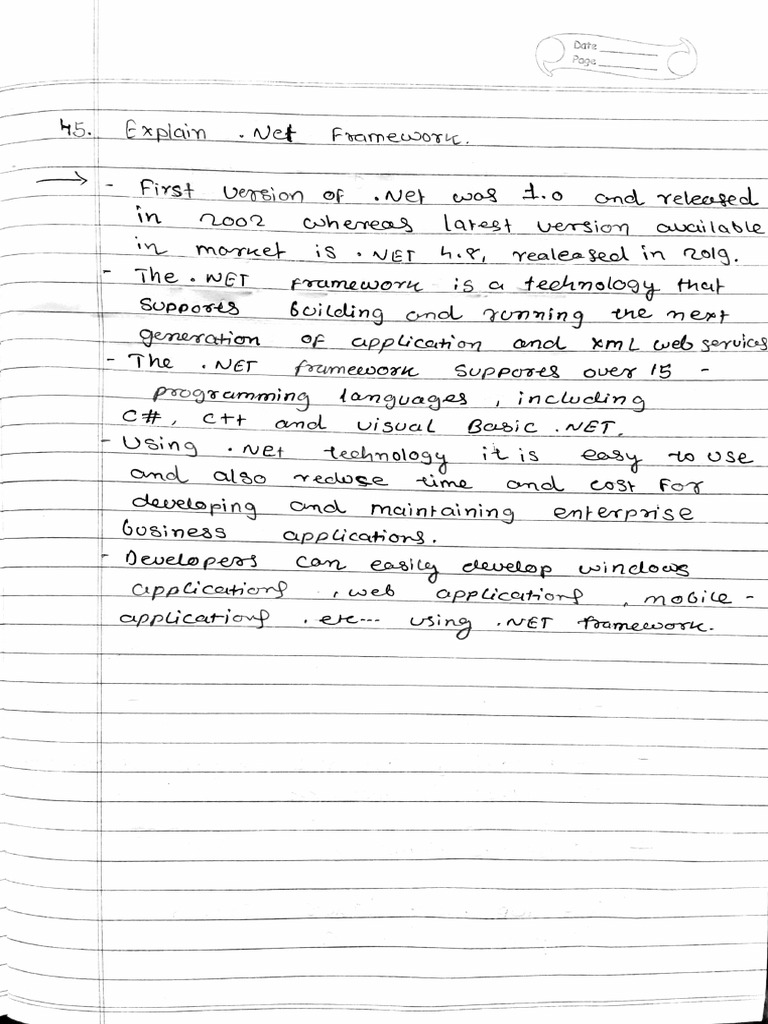 Date
Page
45. Explain .Net Framework.
→ - First version of .Net was 1.0 and released
in 2002 whereas latest version available
in market is .NET 4.8, realeased in 2019.
- The .NET framework is a technology that
supports building and running the next
generation of application and XML web services
- The .NET framework supports over 15 -
programming languages, including
C#, C++ and visual Basic .NET.
- Using .Net technology it is easy to use
and also reduse time and cost for
developing and maintaining enterprise
business applications.
- Developers can easily develop windows
applications, web applications, mobile -
applications .etc... using .NET framework.